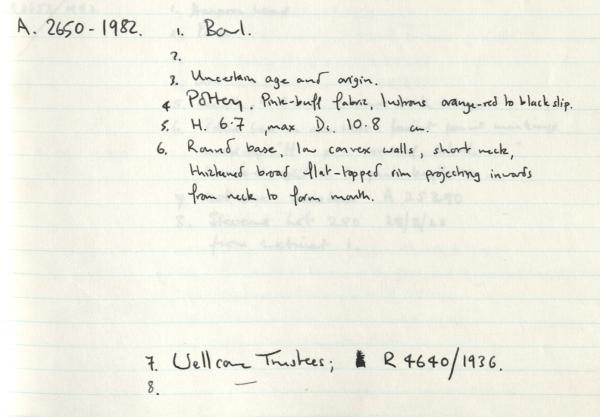 A. 2650-1982. 1. Bowl.
2.
3. Uncertain age and origin.
4 Pottery. Pink-buff fabric, lustrous orange-red to black slip.
5. H. 6.7, max D. 10.8 cm.
6. Round base, low convex walls, short neck,
thickened broad flat-topped rim projecting inwards
from neck to form mouth.
7. Wellcome Trustees; R 4640/1936.
8.